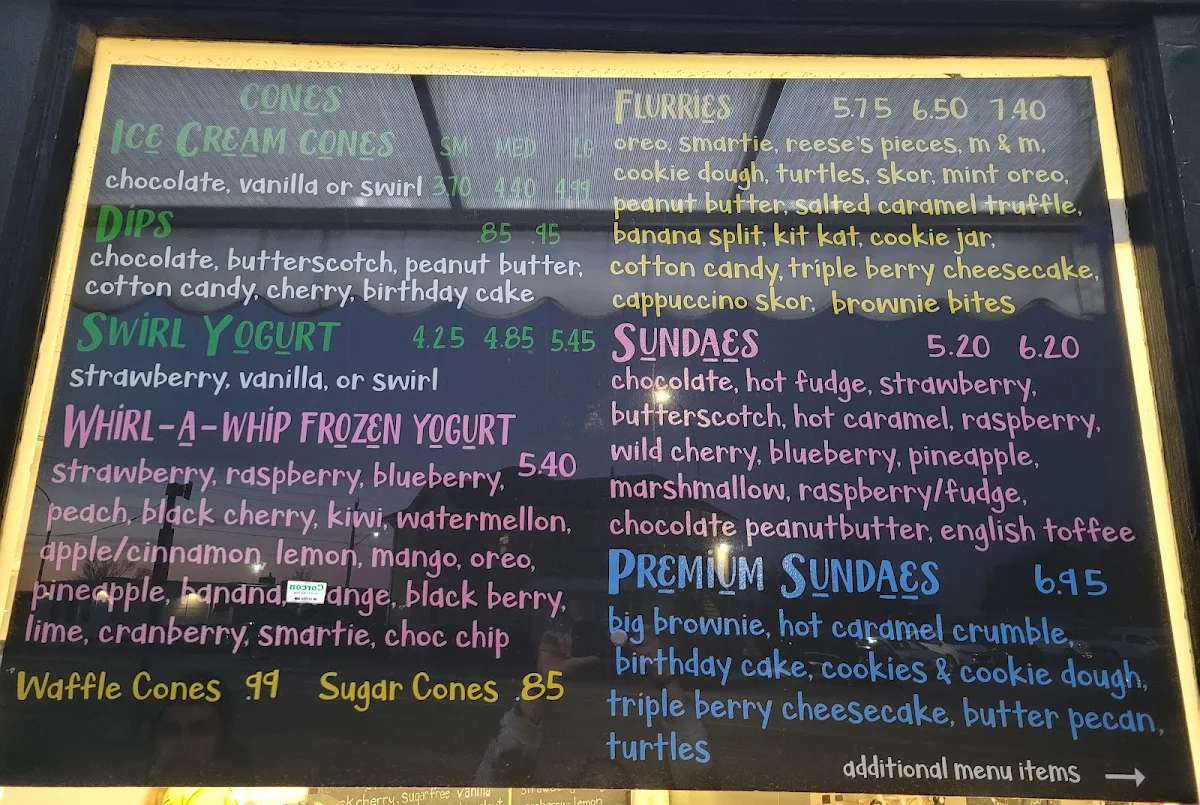 CONES
ICE CREAM CONES SM MED LG
chocolate, vanilla or swirl 3.70 4.40 4.99
DIPS .85 .95
chocolate, butterscotch, peanut butter,
cotton candy, cherry, birthday cake
SWIRL YOGURT 4.25 4.85 5.45
strawberry, vanilla, or swirl
WHIRL-A-WHIP FROZEN YOGURT
strawberry, raspberry, blueberry, 5.40
peach, black cherry, kiwi, watermellon,
apple/cinnamon, lemon, mango, oreo,
pineapple, banana, ange, black berry,
lime, cranberry, smartie, choc chip
Waffle Cones .99 Sugar Cones .85
FLURRIES 5.75 6.50 7.40
oreo, smartie, reese's pieces, m & m,
cookie dough, turtles, skor, mint oreo,
peanut butter, salted caramel truffle,
banana split, kit kat, cookie jar,
cotton candy, triple berry cheesecake,
cappuccino skor, brownie bites
SUNDAES 5.20 6.20
chocolate, hot fudge, strawberry,
butterscotch, hot caramel, raspberry,
wild cherry, blueberry, pineapple,
marshmallow, raspberry/fudge,
chocolate peanutbutter, english toffee
PREMIUM SUNDAES 6.95
big brownie, hot caramel crumble,
birthday cake, cookies & cookie dough,
triple berry cheesecake, butter pecan,
turtles
additional menu items →
ck cherry, Sugar free Vanilla